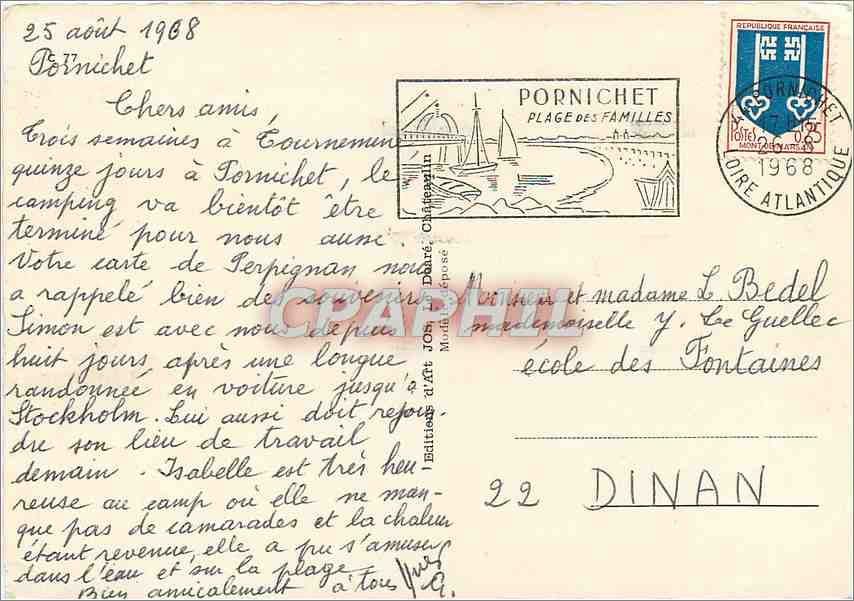 25 août 1968
Pornichet
Chers amis,
Trois semaines à Tournemine
quinze jours à Pornichet, le
camping va bientôt être
terminé pour nous aussi.
Votre carte de Perpignan nous
a rappelé bien des souvenirs
Simon est avec nous depuis
huit jours, après une longue
randonnée en voiture jusqu'à
Stockholm. Lui aussi doit rejoin-
dre son lieu de travail
demain. Isabelle est très heu-
reuse au camp où elle ne man-
que pas de camarades et la chaleur
étant revenue, elle a pu s'amuser
dans l'eau et sur la plage.
Bien amicalement à tous Yves
G.
Editions d'Art JOS, Le Doaré, Châteaulin
Modèle déposé
CPARAMA
PORNICHET
PLAGE DES FAMILLES
REPUBLIQUE FRANÇAISE
POSTES 0,25
MONT-DE-MARSAN
44 PORNICHET
17 H
26
1968
LOIRE ATLANTIQUE
Monsieur et madame L Bedel
mademoiselle Y. Le Guellec
école des Fontaines
22 DINAN